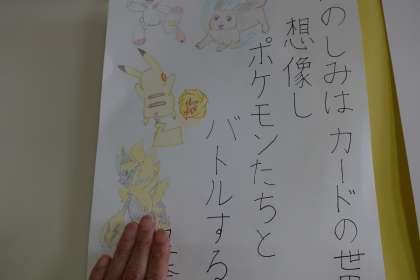 のしみはカードの世
想像し
ポケモンたちと
バトルする